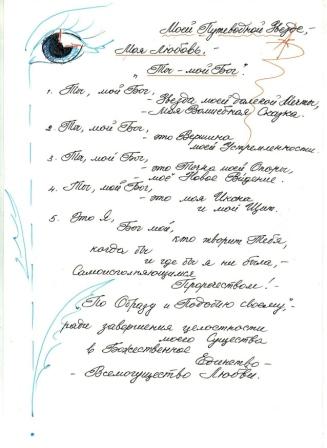 Моей Путеводной Звезде, -
Моя Любовь. -
"Ты - мой Бог".
1. Ты, мой Бог,
- Звезда моей далекой Мечты,
- Моя Волшебная Сказка.
2. Ты, мой Бог,
- это Вершина
моей Устремленности.
3. Ты, мой Бог,
- это Точка моей Опоры,
- моё Новое Видение.
4. Ты, мой Бог,
- это моя Икона
и мой Щит.
5. Это Я,
Бог мой,
кто творит Тебя,
когда бы
и где бы я ни была, -
Самоисполняющимся
Пророчеством! -
"По Образу и Подобию своему", -
ради завершения целостности
моего Существа
в Божественное
Единство -
- Всемогущество Любви.